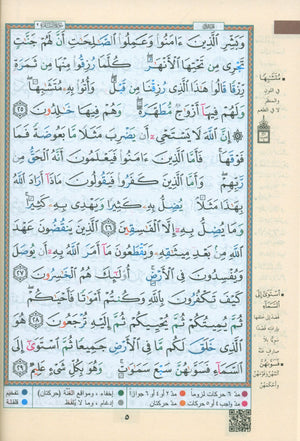 وَبَشِّرِ الَّذِينَ ءَامَنُوا وَعَمِلُوا الصَّـٰلِحَـٰتِ أَنَّ لَهُمْ جَنَّـٰتٍ
تَجْرِى مِن تَحْتِهَا الْأَنْهَـٰرُ ۖ كُلَّمَا رُزِقُوا مِنْهَا مِن ثَمَرَةٍ
رِّزْقًا ۙ قَالُوا هَـٰذَا الَّذِى رُزِقْنَا مِن قَبْلُ ۖ وَأُتُوا بِهِ مُتَشَـٰبِهًا ۖ
وَلَهُمْ فِيهَا أَزْوَٰجٌ مُّطَهَّرَةٌ ۖ وَهُمْ فِيهَا خَـٰلِدُونَ ﴿٢٥﴾
۞ إِنَّ اللَّهَ لَا يَسْتَحْىِ أَن يَضْرِبَ مَثَلًا مَّا بَعُوضَةً فَمَا
فَوْقَهَا ۚ فَأَمَّا الَّذِينَ ءَامَنُوا فَيَعْلَمُونَ أَنَّهُ الْحَقُّ مِن
رَّبِّهِمْ ۖ وَأَمَّا الَّذِينَ كَفَرُوا فَيَقُولُونَ مَاذَا أَرَادَ اللَّهُ
بِهَـٰذَا مَثَلًا ۘ يُضِلُّ بِهِ كَثِيرًا وَيَهْدِى بِهِ كَثِيرًا ۚ
وَمَا يُضِلُّ بِهِ إِلَّا الْفَـٰسِقِينَ ﴿٢٦﴾ الَّذِينَ يَنقُضُونَ عَهْدَ
اللَّهِ مِن بَعْدِ مِيثَـٰقِهِ وَيَقْطَعُونَ مَا أَمَرَ اللَّهُ بِهِ أَن يُوصَلَ
وَيُفْسِدُونَ فِى الْأَرْضِ ۚ أُولَـٰئِكَ هُمُ الْخَـٰسِرُونَ ﴿٢٧﴾
كَيْفَ تَكْفُرُونَ بِاللَّهِ وَكُنتُمْ أَمْوَٰتًا فَأَحْيَـٰكُمْ ۖ
ثُمَّ يُمِيتُكُمْ ثُمَّ يُحْيِيكُمْ ثُمَّ إِلَيْهِ تُرْجَعُونَ ﴿٢٨﴾ هُوَ
الَّذِى خَلَقَ لَكُم مَّا فِى الْأَرْضِ جَمِيعًا ثُمَّ اسْتَوَىٰ إِلَى
السَّمَاءِ فَسَوَّىٰهُنَّ سَبْعَ سَمَـٰوَٰتٍ ۚ وَهُوَ بِكُلِّ شَىْءٍ عَلِيمٌ ﴿٢٩﴾
مُتَشَـٰبِهًا
فى اللون
والمنظر
لا فى الطعم
اسْتَوَىٰ إِلَى
السَّمَاءِ
فَسَوَّىٰهُنَّ
مدّ ٦ حركات لزوماً
مدّ ٢ أو ٤ أو ٦ جوازاً
إخفاء، ومواقع الغُنَّة (حركتان)
تفخيم
مدّ واجب ٤ أو ٥ حركات
مدّ حركتان
إدغام، وما لا يُلفَظ
قلقلة
٥